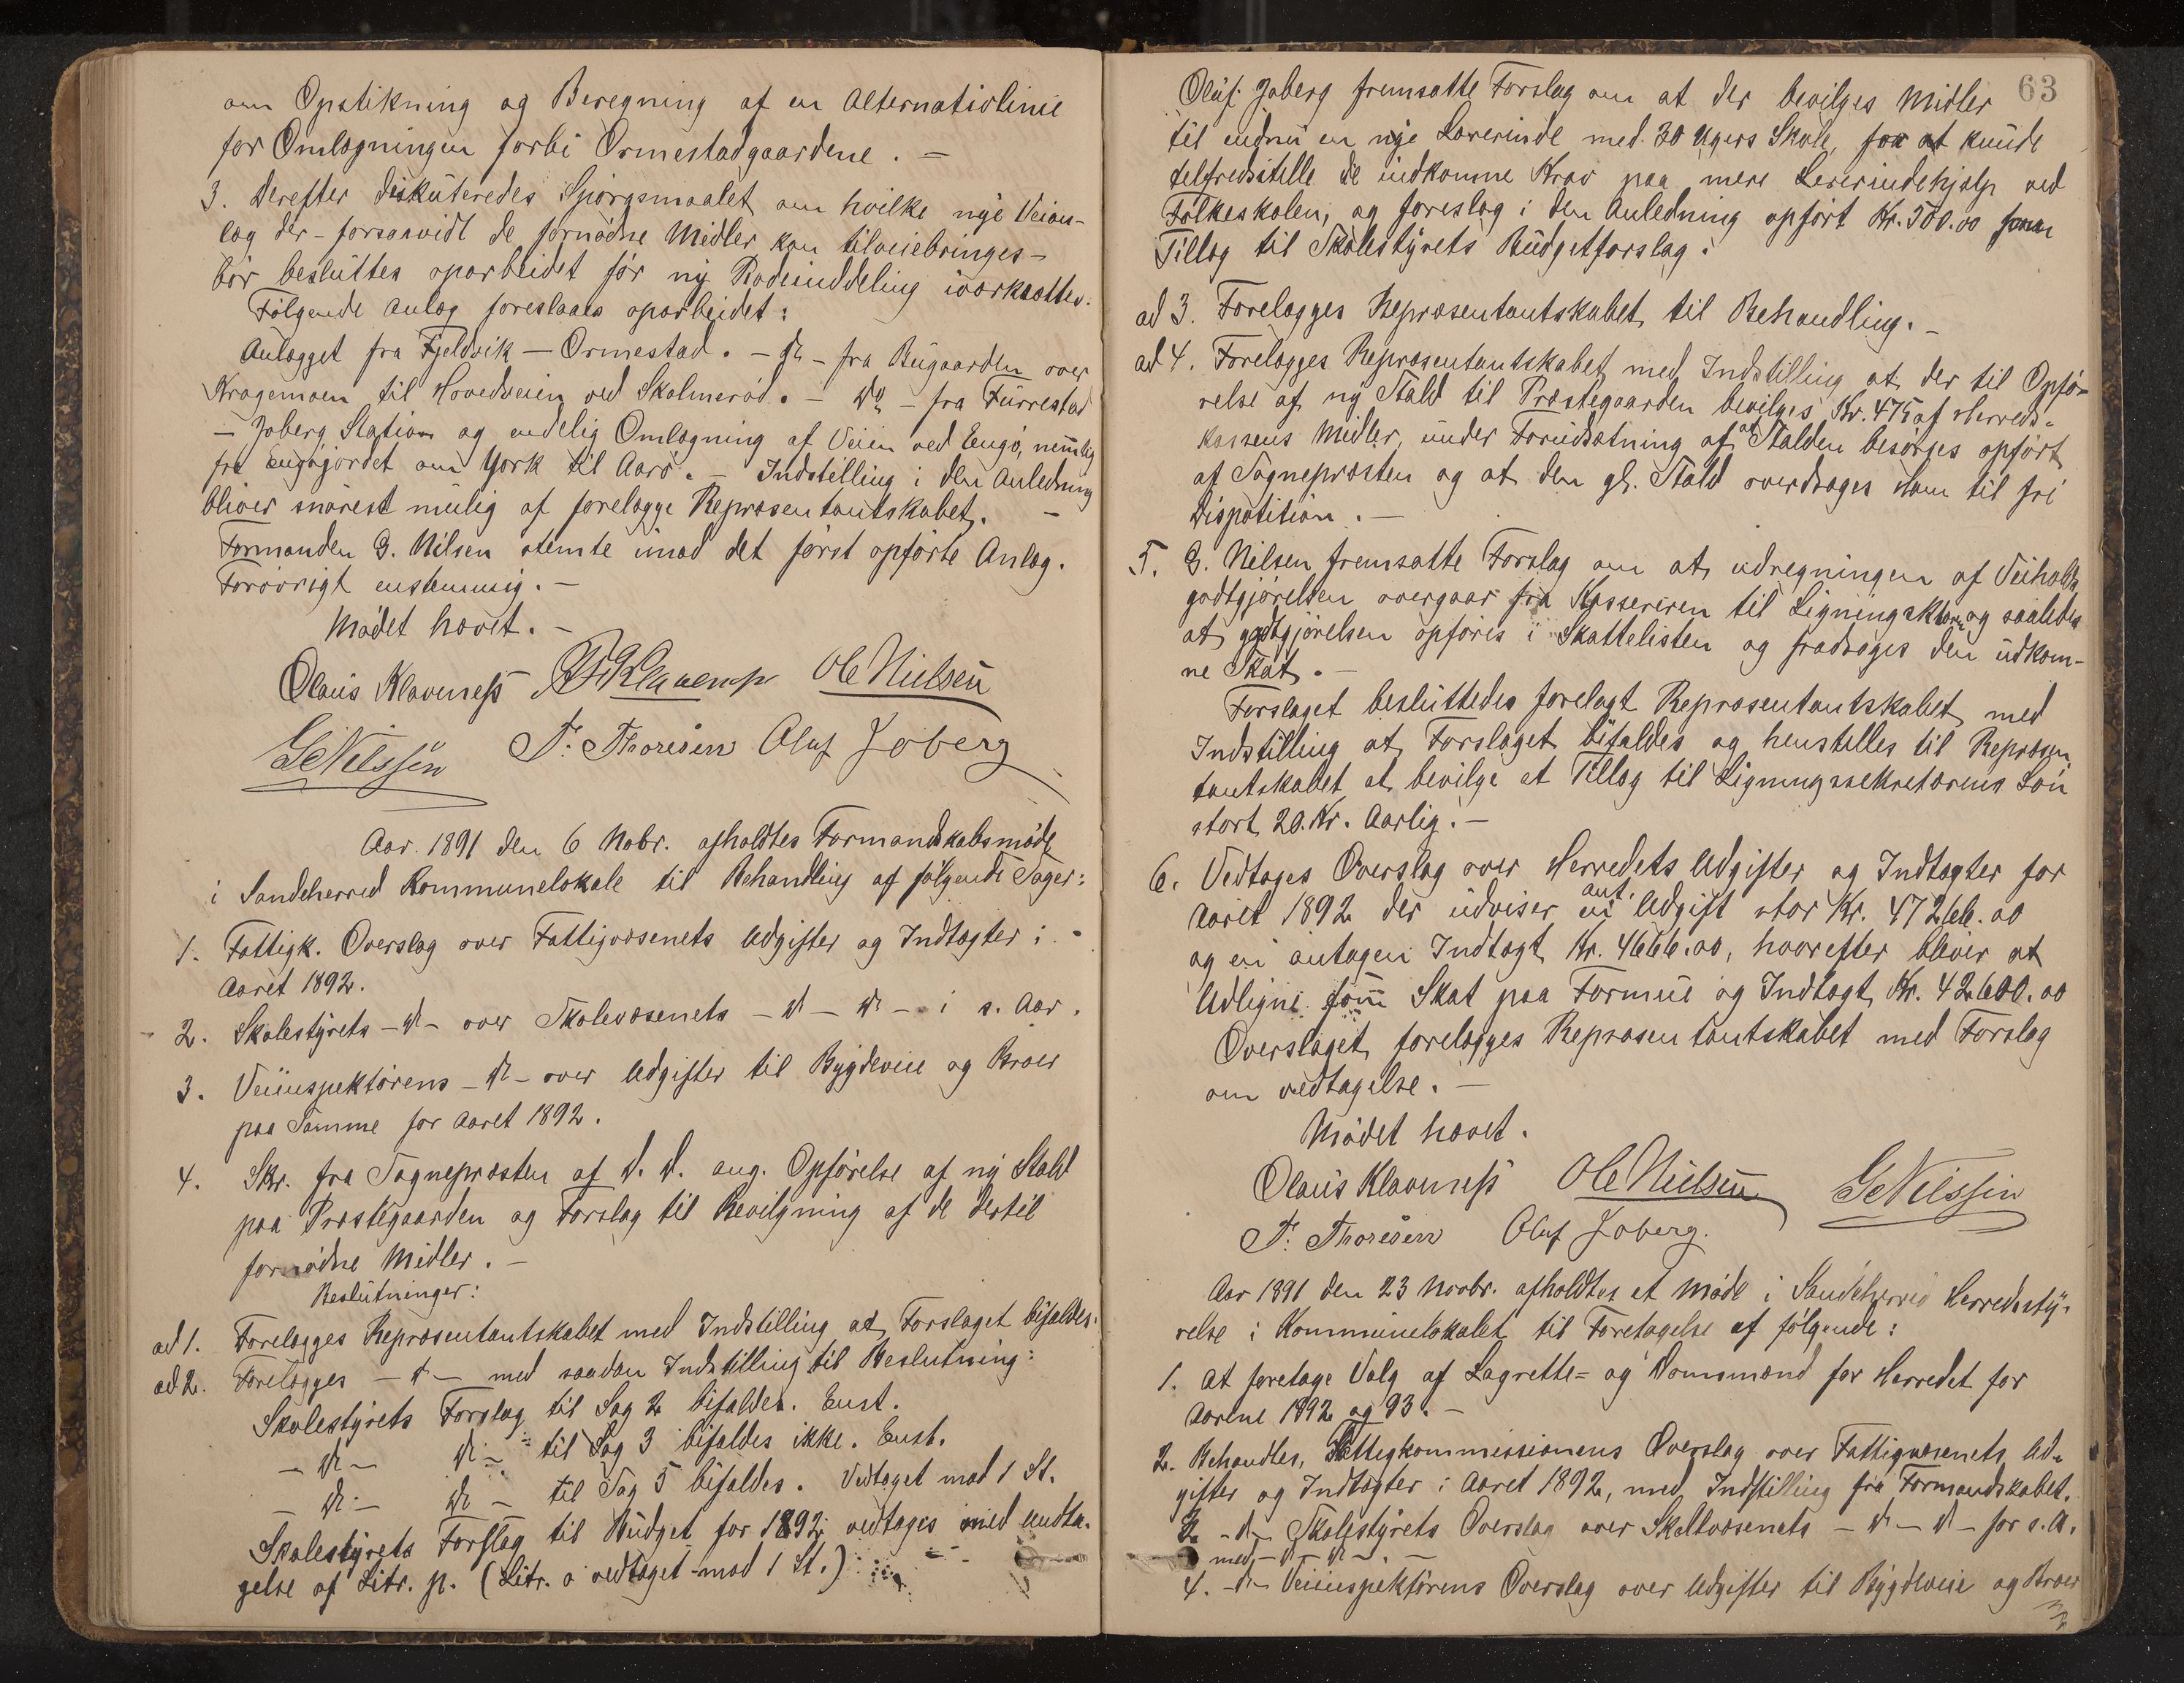 om Opstikning og Beregning af en Alternativlinie
for Omlægningen forbi Ormestadgaardene. –
3. Derefter diskuteredes Spørgsmaalet om hvilke nye Veian-
læg der – forsaavidt de fornødne Midler kan tilveiebringes –
bør besluttes oparbeidet før ny Rodeinddeling iværksættes.
Følgende Anlæg foreslaaes oparbeidet:
Anlægget fra Fjeldvik – Ormestad. – do – fra Bugaarden over
Kragemoen til Hovedveien ved Skolmerød. – do – fra Furrestad
– Joberg Station og endelig Omlægning af Veien ved Engø, nemlig
fra Engøjordet om York til Aarø. – Indstilling i den Anledning
bliver snarest mulig at forelægge Repræsentantskabet. –
Formanden G. Nilsen stemte imod det først opførte Anlæg.
Forøvrigt enstemmig. –
Mødet hævet. –
Olaus Klavenesß Klavenesß Ole Nielsen
G Nilssen T. Thoresen Oluf Joberg
Aar 1891 den 6 Nobr. afholdtes Formandskabsmøde
i Sandeherred Kommunelokale til Behandling af følgende Sager:
1. Fattigk. Overslag over Fattigvæsenets Udgifter og Indtægter i
Aaret 1892.
2. Skolestyrets – do – over Skolevæsenets – do – do – i s. Aar.
3. Veiinspektørens – do – over Udgifter til Bygdeveie og Broer
paa Samme for Aaret 1892.
4. Skr. fra Sognepræsten af d. D. ang. Opførelse af ny Stald
paa Præstegaarden og Forslag til Bevilgning af de dertil
fornødne Midler. –
Beslutninger:
ad 1. Forelægges Repræsentantskabet med Indstilling at Forslaget bifaldes.
ad 2. Forelægges – do – med saadan Indstilling til Beslutning:
Skolestyrets Forslag til Sag 2 bifaldes. Enst.
– do – do – til Sag 3 bifaldes ikke. Enst.
– do – do – til Sag 5 bifaldes. Vedtaget mod 1 St.
Skolestyrets Forslag til Budget for 1892 vedtages med Undta-
gelse af Litr. p. (Litr. o vedtaget mod 1 St.)
63
Oluf Joberg fremsatte Forslag om at der bevilges Midler
til endnu en nye Lærerinde med 30 Ugers Skole, for at kunde
tilfredsstille de indkomne Krav paa mere Lærerindehjælp ved
Folkeskolen, og foreslog i den Anledning opført Kr. 500.00 som
Tillæg til Skolestyrets Budgetforslag.
ad 3. Forelægges Repræsentantskabet til Behandling. –
ad 4. Forelægges Repræsentantskabet med Indstilling at der til Opfø-
relse af ny Stald til Præstegaarden bevilges Kr. 475 af Herreds-
kassens Midler, under Forudsætning af at Stalden besørges opført
af Sognepræsten og at den gl. Stald overdrages ham til fri
Disposition. –
5. G. Nilsen fremsatte Forslag om at udregningen af Veiholds
godtgjørelsen overgaar fra Kassereren til Ligningsk og saaledes
at godtgjørelsen opføres i Skattelisten og fradrages den udkom-
ne Skat. –
Forslaget besluttedes forelagt Repræsentantskabet med
Indstilling at Forslaget bifaldes og henstilles til Repræsen
tantskabet at bevilge et Tillæg til Ligningssekretærens Løn
stort 20. Kr. Aarlig. –
6. Vedtages Overslag over Herredets Udgifter og Indtægter for
Aaret 1892 der udviser en ant. Udgift stor Kr. 47266.00
og en antagen Indtægt Kr. 4666.00, hvorefter bliver at
Udligne som Skat paa Formue og Indtægt Kr. 42600.00
Overslaget forelægges Repræsentantskabet med Forslag
om vedtagelse. –
Mødet hævet.
Olaus Klavenesß Ole Nielsen G Nilssen
T. Thoresen Oluf Joberg.
Aar 1891 den 23 Novbr. afholdtes et Møde i Sandeherred Herredssty-
relse i Kommunelokalet til Foretagelse af følgende:
1. At foretage Valg af Lagrette- og Domsmænd for Herredet for
Aarene 1892 og 93. –
2. Behandles, Fattigkommissionens Overslag over Fattigvæsenets Ud-
gifter og Indtægter i Aaret 1892, med Indstilling fra Formandskabet.
3. – do – Skolestyrets Overslag over Skolevæsenets – do – do – for s. A.
med – do – do –
4. – do – Veiinspektørens Overslag over Udgifter til Bygdeveie og Broer